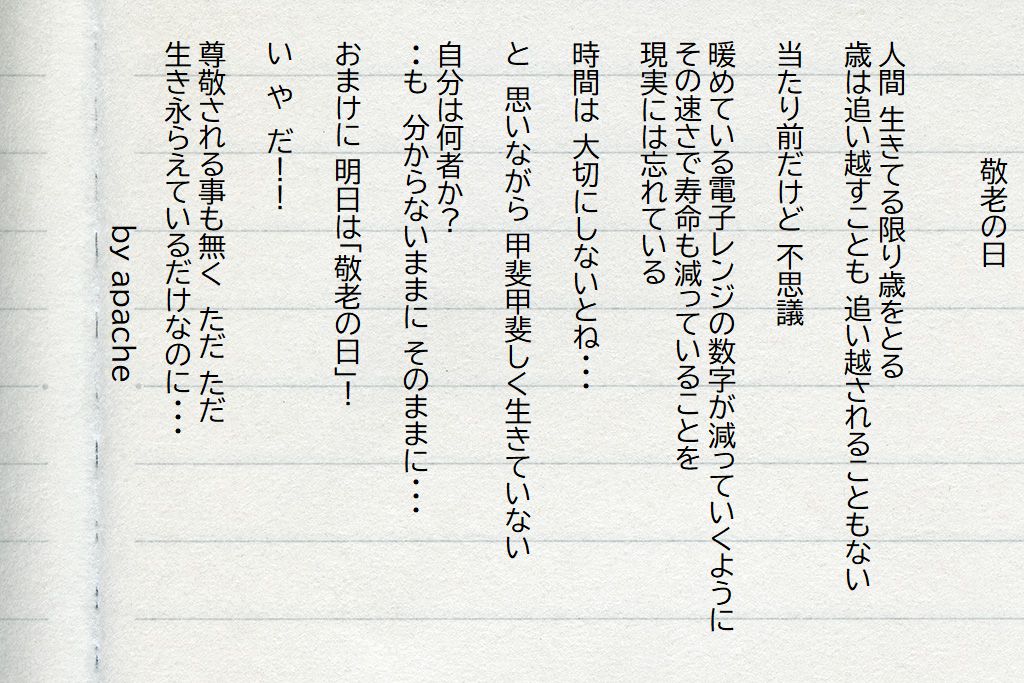 敬老の日
人間 生きてる限り歳をとる
歳は追い越すことも 追い越されることもない
当たり前だけど 不思議
暖めている電子レンジの数字が減っていくように
その速さで寿命も減っていることを
現実には忘れている
時間は 大切にしないとね・・・
と 思いながら 甲斐甲斐しく生きていない
自分は何者か?
・・も 分からないままに そのままに・・・
おまけに 明日は「敬老の日」!
い や だ!!
尊敬される事も無く ただ ただ
生き永らえているだけなのに・・・
by apache